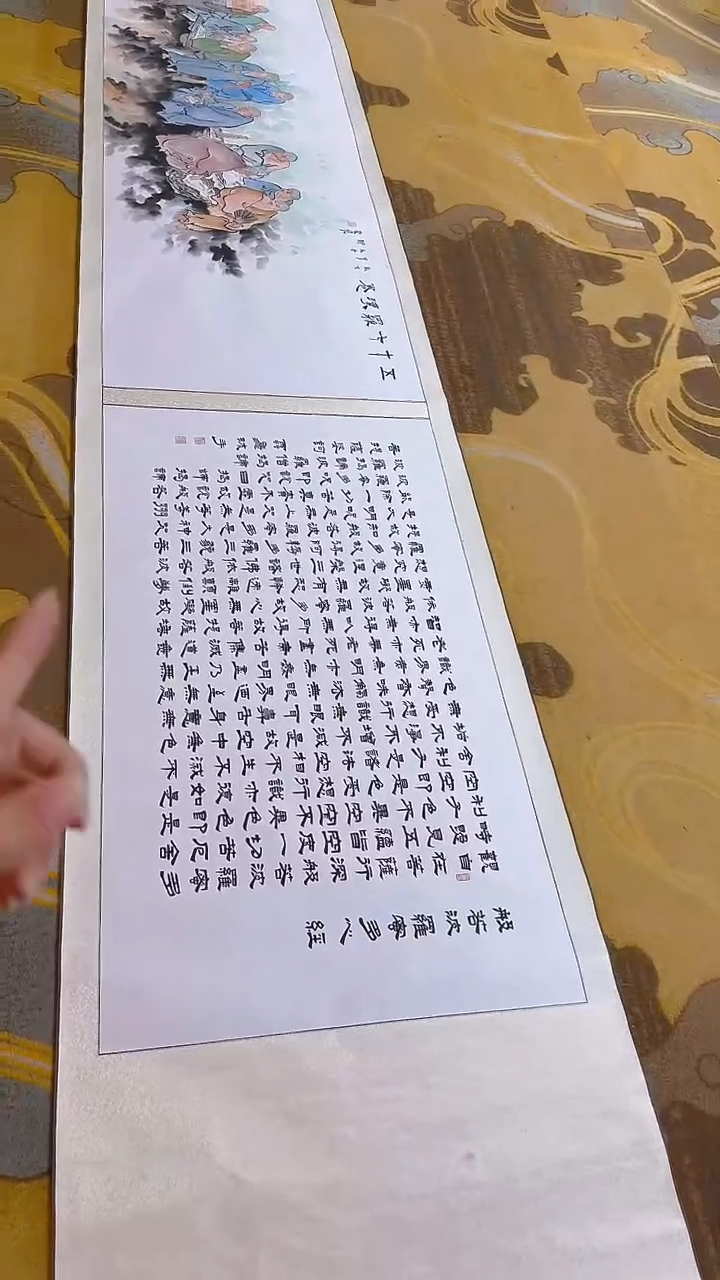 般若波羅蜜多心經
觀自在菩薩行深般若波羅蜜多
時照見五蘊皆空度一切苦厄舍
利子色不異空空不異色色即是
空空即是色受想行識亦復如是
舍利子是諸法空相不生不滅不
垢不淨不增不減是故空中無色
無受想行識無眼耳鼻舌身意無
色聲香味觸法無眼界乃至無意
識界無無明亦無無明盡乃至無
老死亦無老死盡無苦集滅道無
智亦無得以無所得故菩提薩埵
依般若波羅蜜多故心無罣礙無
罣礙故無有恐怖遠離顛倒夢
想究竟涅槃三世諸佛依般若波
羅蜜多故得阿耨多羅三藐三菩
提故知般若波羅蜜多是大神咒
是大明咒是無上咒是無等等咒
能除一切苦真實不虛故說般若
波羅蜜多咒即說咒曰揭諦揭諦
羅漢卷